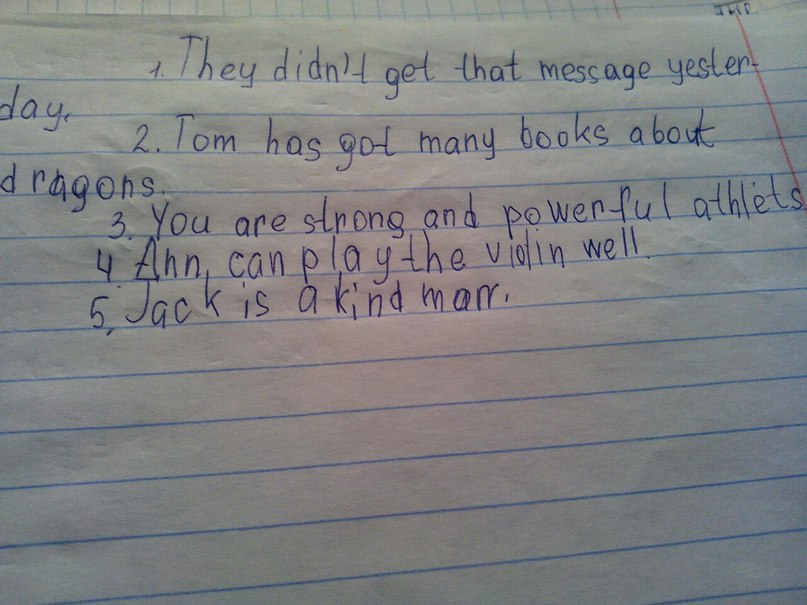 1. They didn't get that message yester-
day.
2. Tom has got many books about
dragons.
3. You are strong and powerful athlets
4. Ann, can play the violin well.
5. Jack is a kind man.